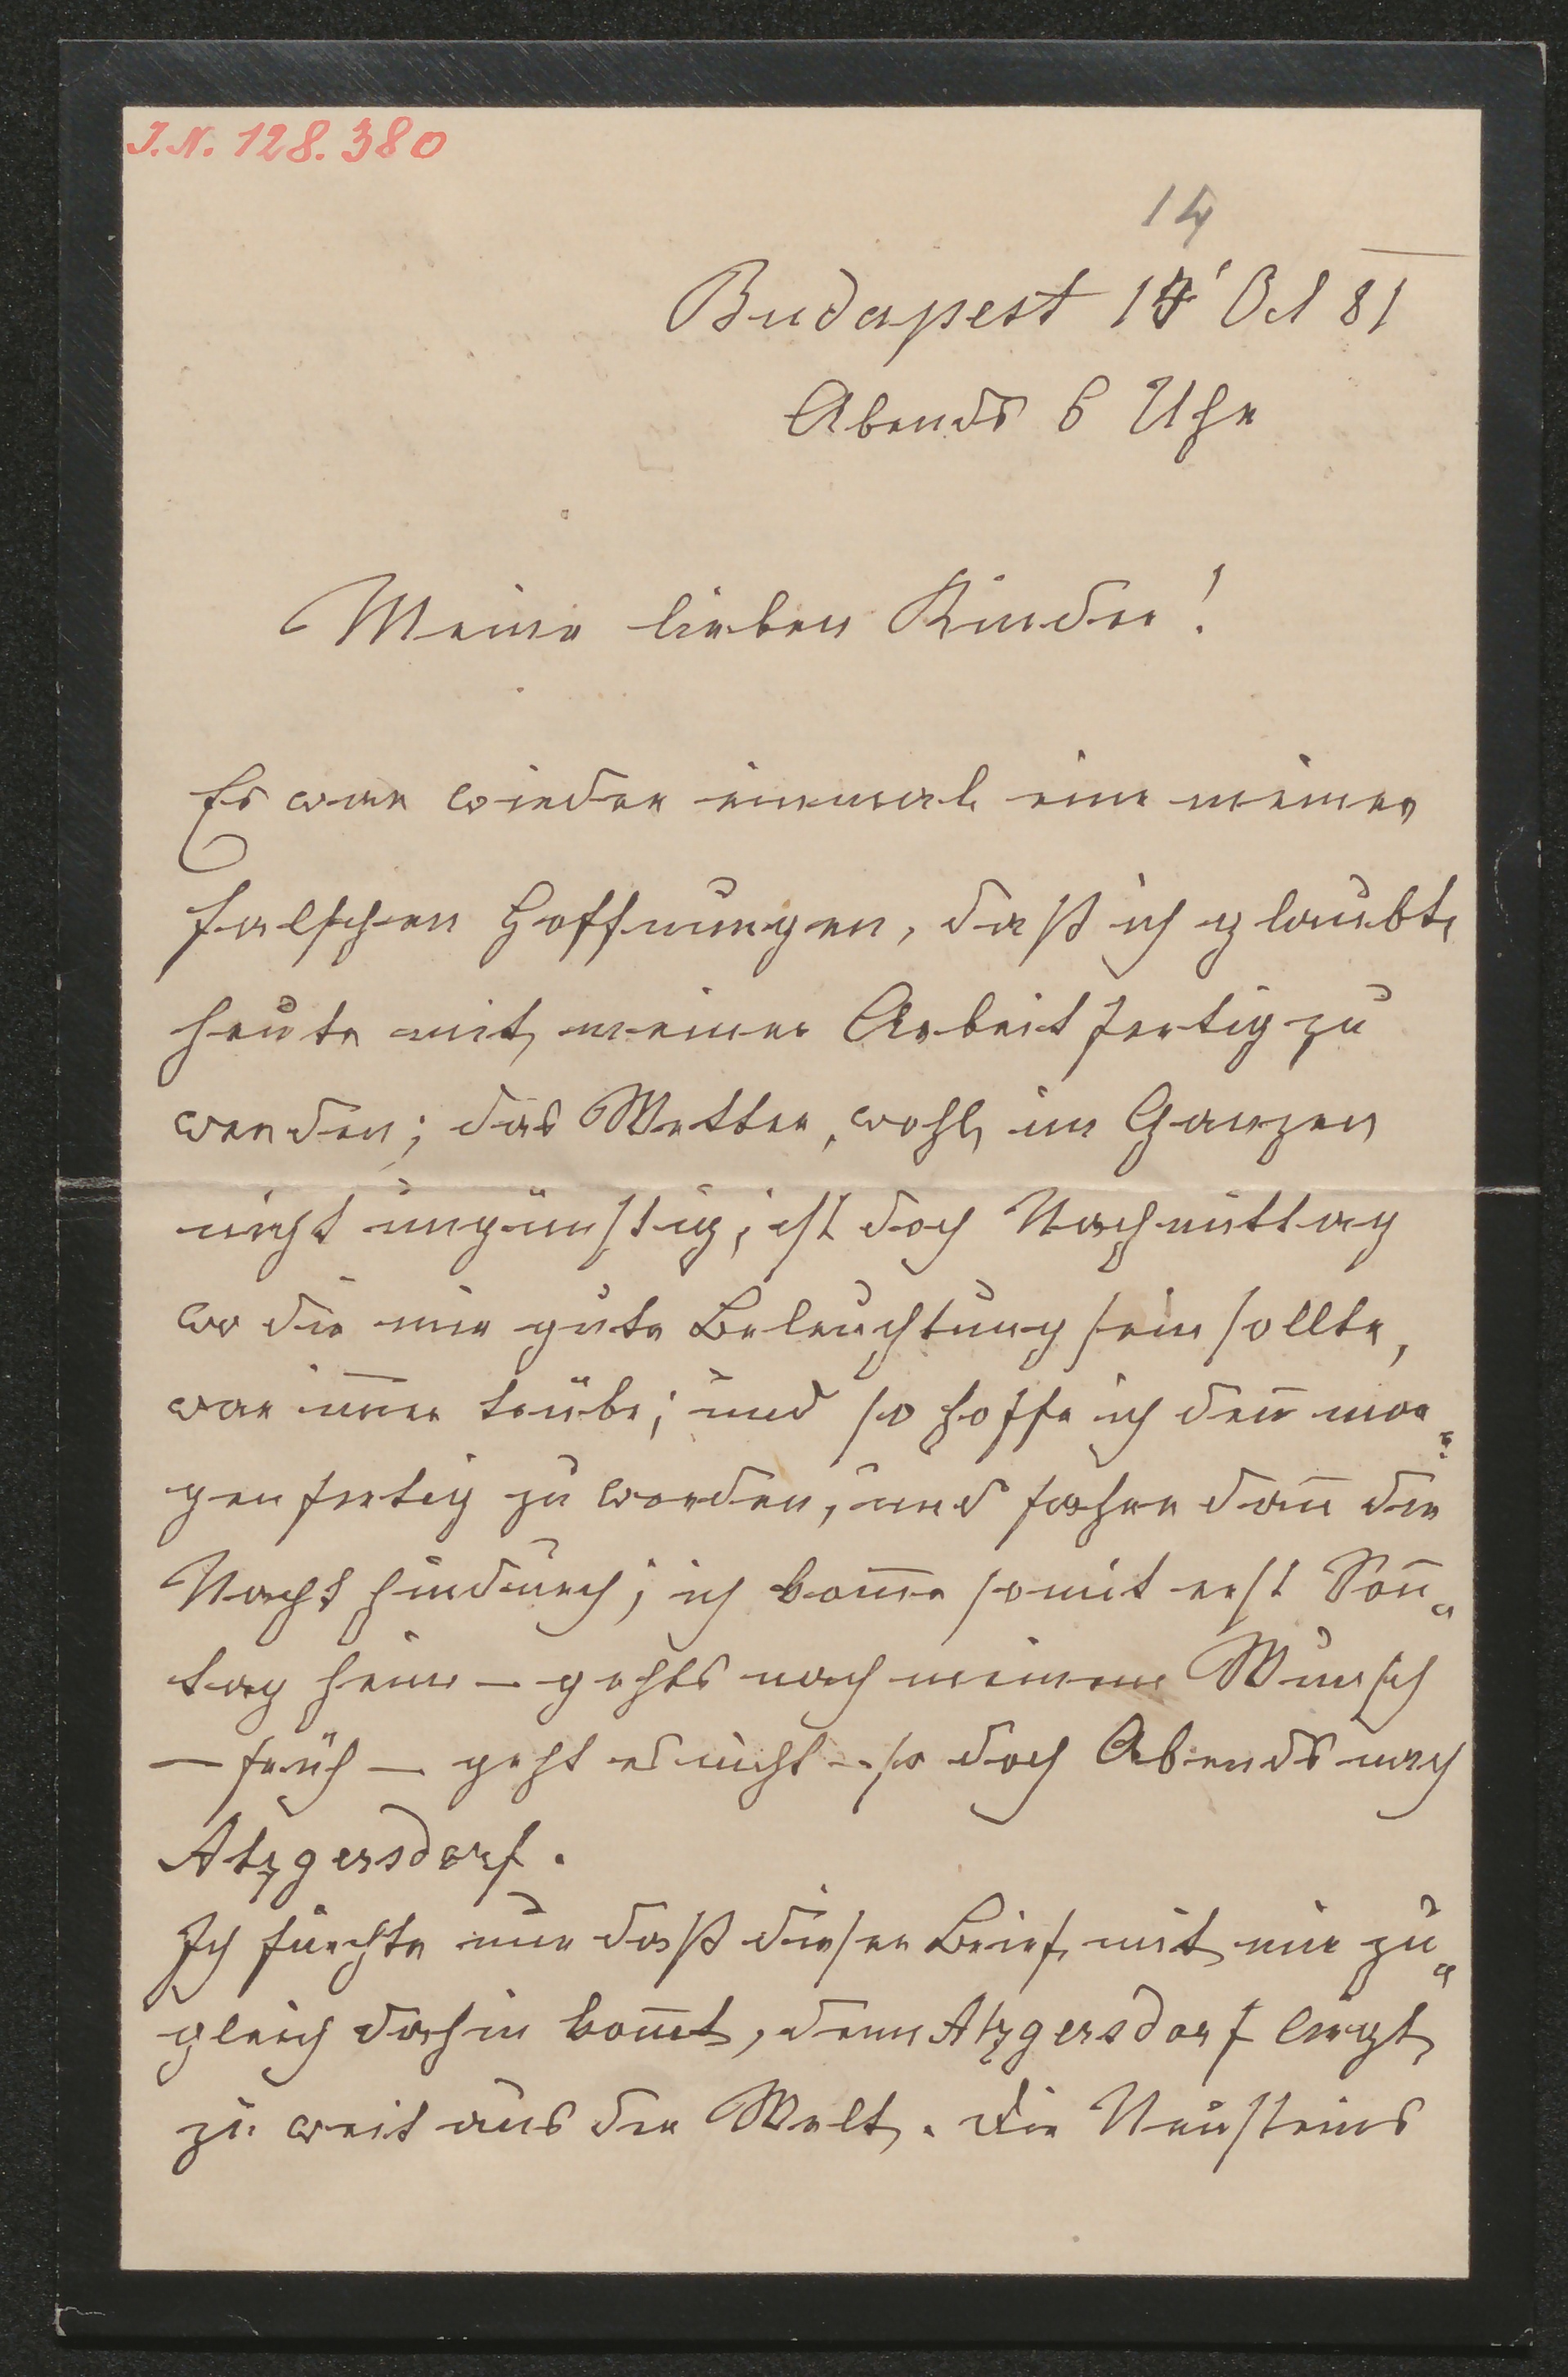 J.N. 128.380
14
Budapest 14' Oct 81
Abends 6 Uhr
Meine lieben Kinder!
Es war wieder einmal eine meiner
falschen Hoffnungen, daß ich glaubte
heute mit meiner Arbeit fertig zu
werden; das Wetter, wohl im Ganzen
nicht ungünstig, ist doch Nachmittag
wo die mir gute Beleuchtung sein sollte,
war im̄er trübe; und so hoffe ich den̄ mor¬
gen fertig zu werden, und fahre dan̄ die
Nacht hindurch; ich kom̄e somit erst Son̄¬
tag heim – gehts nach meinem Wunsch
– früh – geht es nicht – so doch Abends nach
Atzgersdorf.
Ich fürchte nur daß dieser Brief mit mir zu¬
gleich dahin kom̄t, denn Atzgersdorf liegt
zu weit aus der Welt. Die Neusteins